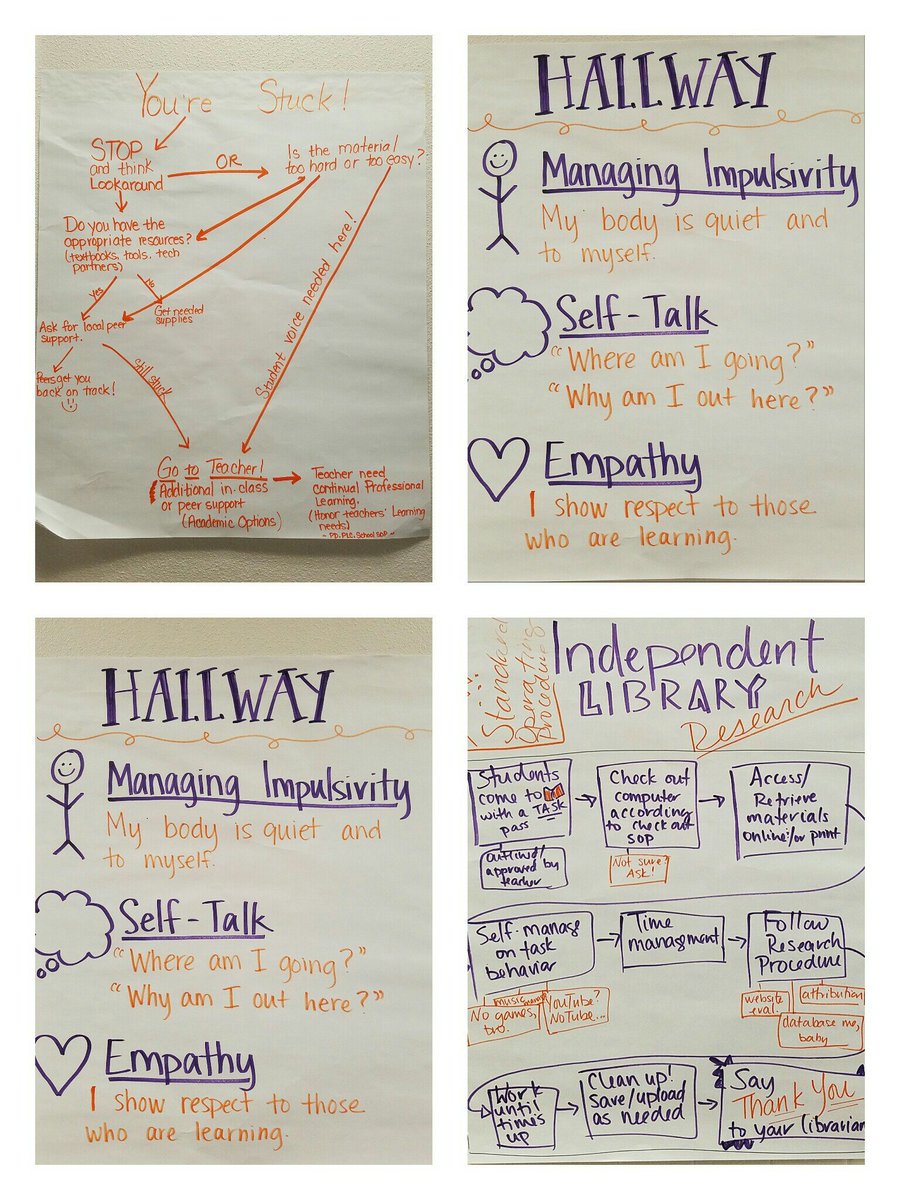 You're Stuck!
STOP
and think
Look around
OR
Is the material
too hard or too easy?
Do you have the
appropriate resources?
(textbooks, tools, tech
partners)
Yes
No
Get needed
supplies
Ask for local peer
support.
Peers get you
back on track!
Still stuck
Student voice needed here!
Go to Teacher!
Additional in-class
or peer support
(Academic Options)
Teacher need
continual Professional
Learning.
(Honor teachers' Learning
needs)
~ PD, PLC, School SOP ~
HALLWAY
Managing Impulsivity
My body is quiet and
to myself.
Self-Talk
"Where am I going?"
"Why am I out here?"
Empathy
I show respect to those
who are learning.
HALLWAY
Managing Impulsivity
My body is quiet and
to myself.
Self-Talk
"Where am I going?"
"Why am I out here?"
Empathy
I show respect to those
who are learning.
Standard
Operating
Procedure
Independent
LIBRARY
Research
Students
come to
with a TASK
pass
outlined/
approved by
teacher
Check out
computer
according
to check out
SOP
Not sure?
Ask!
Access/
Retrieve
materials
online/or print
Self-manage
on task
behavior
music
No games,
bro.
YouTube?
NoTube...
Time
management
Follow
Research
Procedure
website
eval.
attribution
database me,
baby
Work
until
time's
up
Clean up!
Save/upload
as needed
Say
Thank You
to your librarian